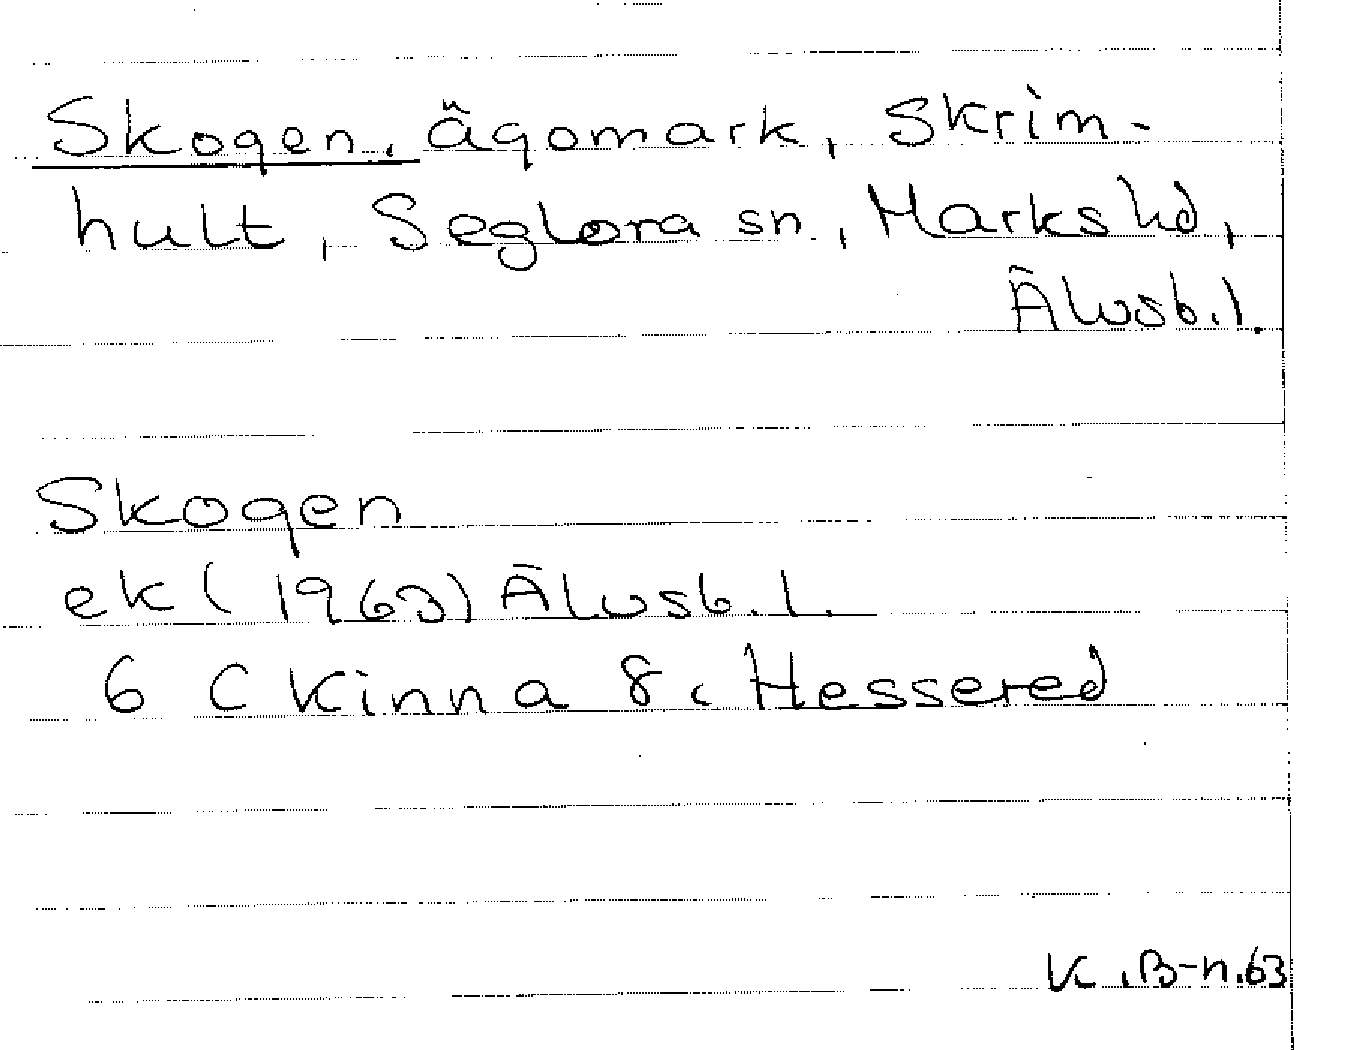 Skogen, ägomark, Skrim-
hult, Seglora sn, Marks hd,
Älvsb. l.
Skogen
ek (1963) Älvsb. l.
6 C Kinna 8 c Hessered
K. B-n. 63